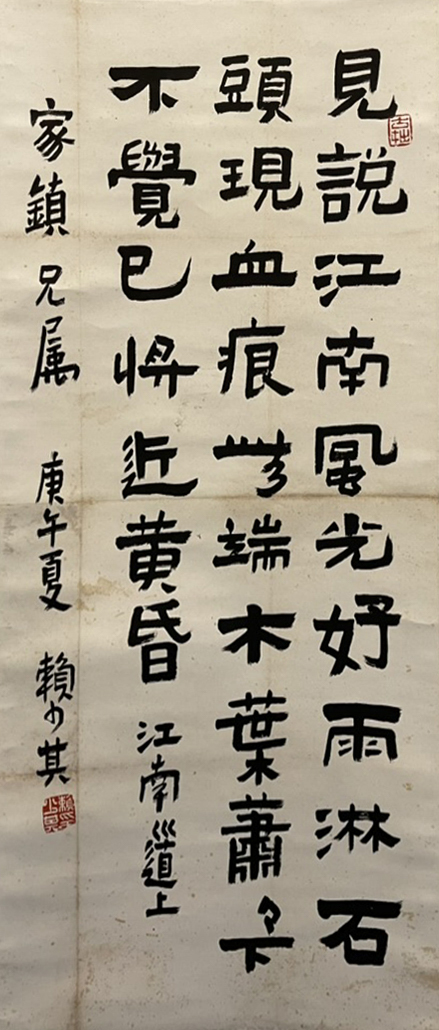 見説江南風光好雨淋石
頭現血痕無端木葉蕭々下
不覺已將近黄昏 江南道上
家鎮兄属 庚午夏 賴少其